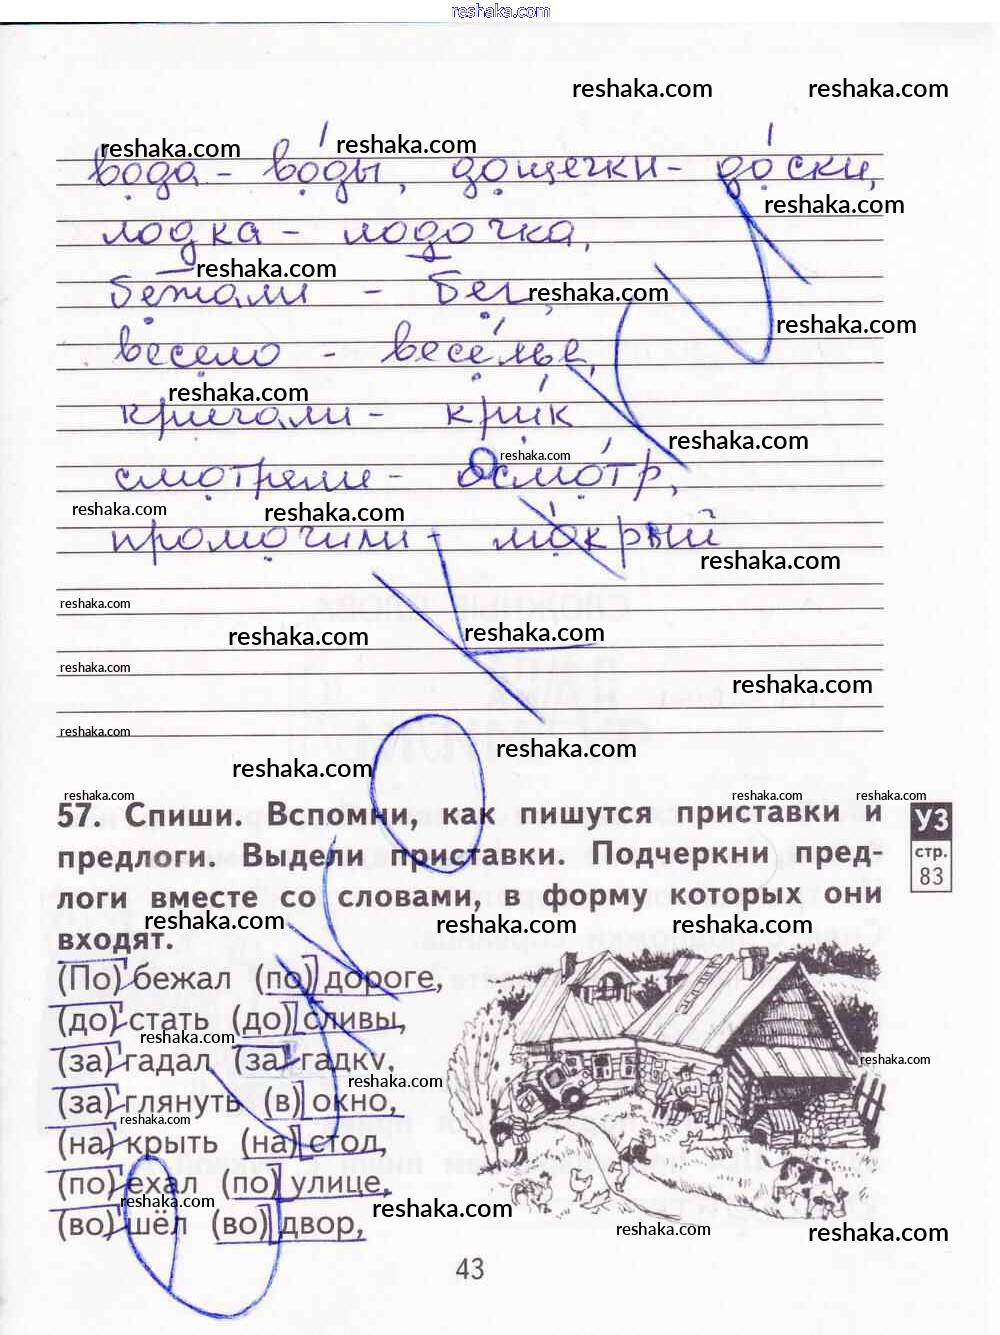 reshaka.com
reshaka.com reshaka.com
reshaka.com reshaka.com
вода - во́ды, дощечки - до́ски,
reshaka.com
лодка - лодочка,
reshaka.com
бежали - бег,
reshaka.com
reshaka.com
весело - весе́лье,
reshaka.com
кричали - кри́к
reshaka.com
reshaka.com
смотрели - осмо́тр,
reshaka.com reshaka.com
промочили - мо́крый
reshaka.com
reshaka.com
reshaka.com reshaka.com
reshaka.com
reshaka.com
reshaka.com
reshaka.com
reshaka.com
reshaka.com reshaka.com reshaka.com
57. Спиши. Вспомни, как пишутся приставки и
предлоги. Выдели приставки. Подчеркни пред-
логи вместе со словами, в форму которых они
входят.
УЗ
стр.
83
reshaka.com reshaka.com reshaka.com
(По) бежал (по) дороге,
(до) стать (до) сливы,
reshaka.com
(за) гадал (за) гадку,
reshaka.com
reshaka.com
(за) глянуть (в) окно,
reshaka.com
(на) крыть (на) стол,
(по) ехал (по) улице,
reshaka.com reshaka.com
(во) шёл (во) двор,
reshaka.com reshaka.com
43